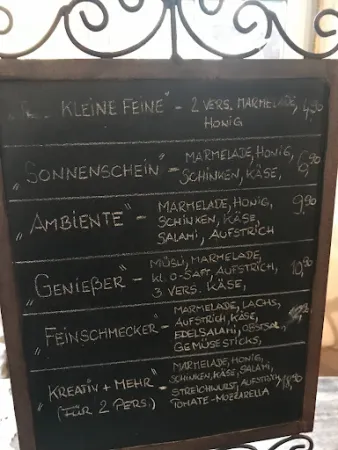 KLEINE FEINE" - 2 VERS. MARMELADE, 4,90
HONIG
"SONNENSCHEIN" - MARMELADE, HONIG,
SCHINKEN, KÄSE, 6,90
"AMBIENTE" - MARMELADE, HONIG, 9,90
SCHINKEN, KÄSE,
SALAMI, AUFSTRICH
"GENIEßER" - MÜSLI, MARMELADE, 10,90
KL. O-SAFT, AUFSTRICH,
3 VERS. KÄSE,
"FEINSCHMECKER" - MARMELADE, LACHS,
AUFSTRICH, KÄSE,
EDELSALAMI, OBSTSAL.
GEMÜSESTICKS,
"KREATIV + MEHR" - MARMELADE, HONIG,
(FÜR 2 PERS.) SCHINKEN, KÄSE, SALAMI,
STREICHWURST, AUFSTRICH
TOMATE-MOZZARELLA